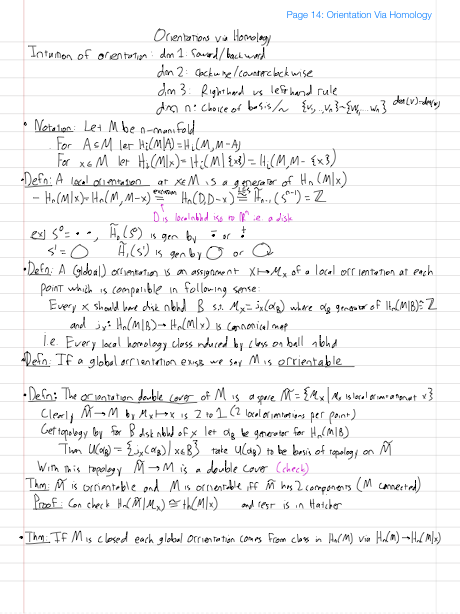 Page 14: Orientation Via Homology
Orientations via Homology
Intuition of orientation: dim 1: foward/backward
dim 2: clockwise/counterclockwise
dim 3: Righthand vs lefthand rule
dim n: Choice of basis/~ {v₁,...,vₙ}~{w₁,...wₙ}
• Notation: Let M be n-manifold
For A⊆M let Hᵢ(M|A)=Hᵢ(M,M-A)
For x∈M let Hᵢ(M|x)=Hᵢ(M|{x})=Hᵢ(M,M-{x})
• Defn: A local orientation at x∈M is a generator of Hₙ(M|x)
- Hₙ(M|x)=Hₙ(M,M-x) ≅ excision Hₙ(D,D-x) ≅ LES H̃ₙ₋₁(Sⁿ⁻¹)=ℤ
D is local nbhd iso to ℝⁿ i.e. a disk
ex) S⁰= • •, H̃₀(S⁰) is gen by or
S¹= H̃₁(S¹) is gen by or
• Defn: A (global) orrientation is an assignment x↦μₓ of a local orrientation at each
point which is compatible in following sense:
Every x should have disk nbhd B s.t. μₓ=jₓ(α_B) where α_B generator of Hₙ(M|B)≅ℤ
and jₓ: Hₙ(M|B)→Hₙ(M|x) is cannonical map
i.e. Every local homology class induced by class on ball nbhd
• Defn: If a global orrientation exists we say M is orrientable
• Defn: The orientation double cover of M is a space M̃={μₓ|μₓ is local orientation at x}
Clearly M̃→M by μₓ↦x is 2 to 1 (2 local orientations per point)
Get topology by for B disk nbhd of x let α_B be generator for Hₙ(M|B)
Then U(α_B)={jₓ(α_B)|x∈B} take U(α_B) to be basis of topology on M̃
With this topology M̃→M is a double cover (check)
Thm: M̃ is orrientable and M is orrientable iff M̃ has 2 components (M connected)
Proof: Can check Hₙ(M̃|μₓ)≅Hₙ(M|x) and rest is in Hatcher
• Thm: If M is closed each global orrientation comes from class in Hₙ(M) via Hₙ(M)→Hₙ(M|x)